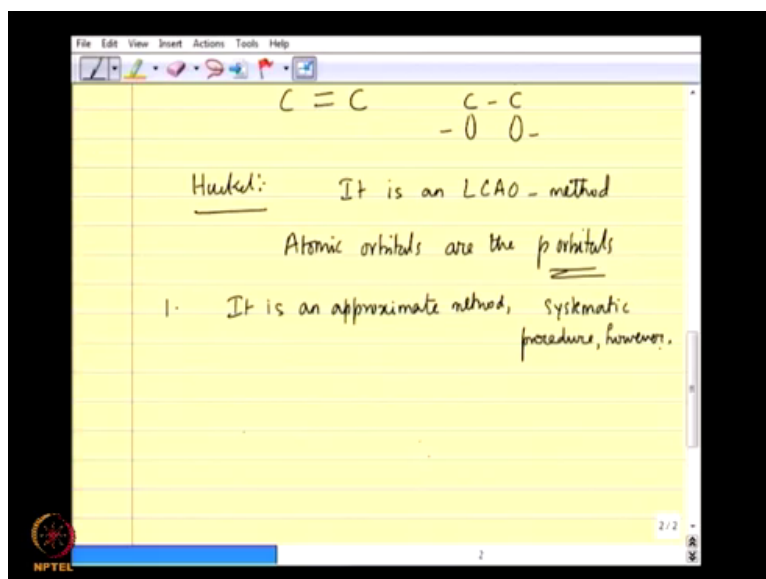 File Edit View Insert Actions Tools Help
C = C C - C
- 0 0 -
Huckel:
It is an LCAO - method
Atomic orbitals are the p orbitals
1. It is an approximate method, systematic
procedure, however.
2 / 2
2
NPTEL